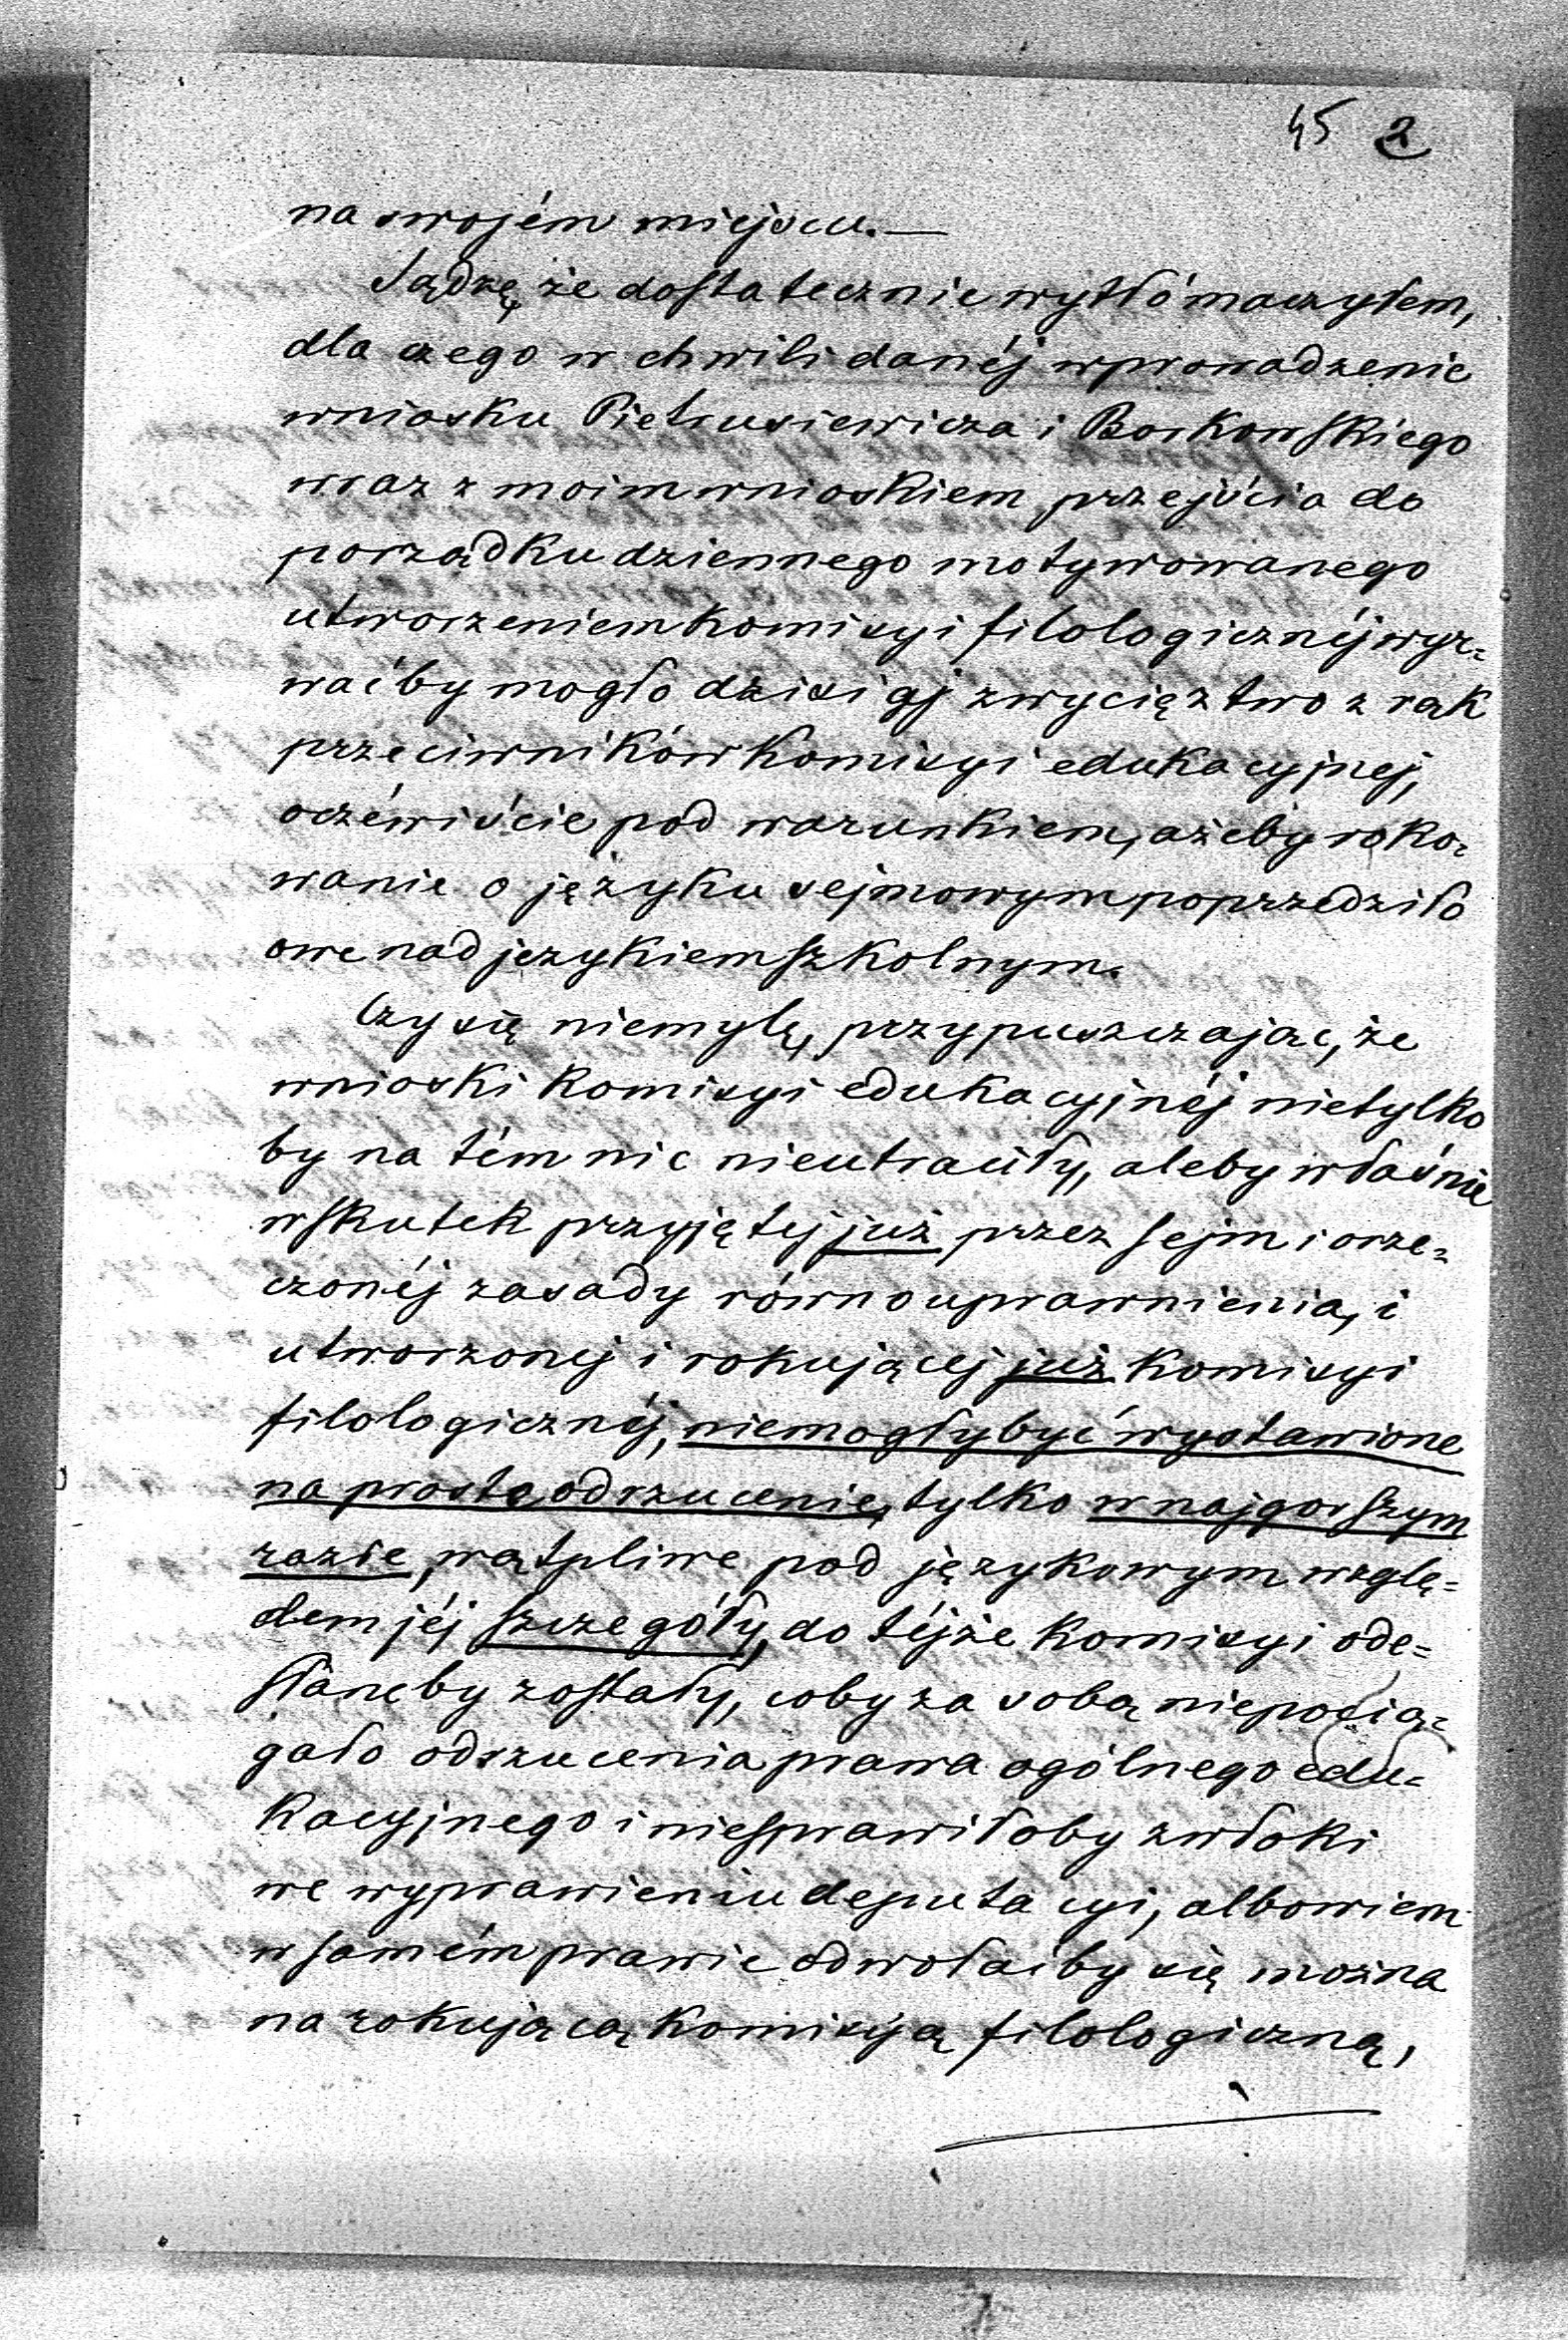 45 2
na swojém miejscu.—
Sądzę, że dostatecznie wytłómaczyłem,
dla czego w chwili danéj wprowadzenie
wniosku Pietrusiewicza i Borkowskiego
wraz z moim wnioskiem, przejścia do
porządku dziennego motywowanego
utworzeniem komisyi filologicznéj wyr=
waćby mogło dzisiąj zwycięztwo z rąk
przeciwników komisyi edukacyjnej,
oczéwiście pod warunkiem, ażeby roko=
wanie o języku sejmowym poprzedziło
owe nad językiem szkolnym.
Czy się niemylę, przypuszczając, że
wnioski komisyi edukacyjnéj nietylko
by na tém nic nieutraciły, aleby właśnie
wskutek przyjętej już przez sejm i orze=
czonéj zasady równouprawnienia, i
utworzonej i rokującej już komisyi
filologicznéj, niemogłybyć wystawione
na proste odrzucenie, tylko w najgorszym
razie, wątpliwe pod językowym wzglę=
dem jéj szczegóły, do téjże komisyi ode=
słaneby zostały, coby za sobą niepocią=
gało odrzucenia prawa ogólnego edu=
kacyjnego i niesprawiłoby zwłoki
we wyprawieniu deputacyi, albowiem
w samém prawie odwołaćby się można
na rokującą komisyją filologiczną,